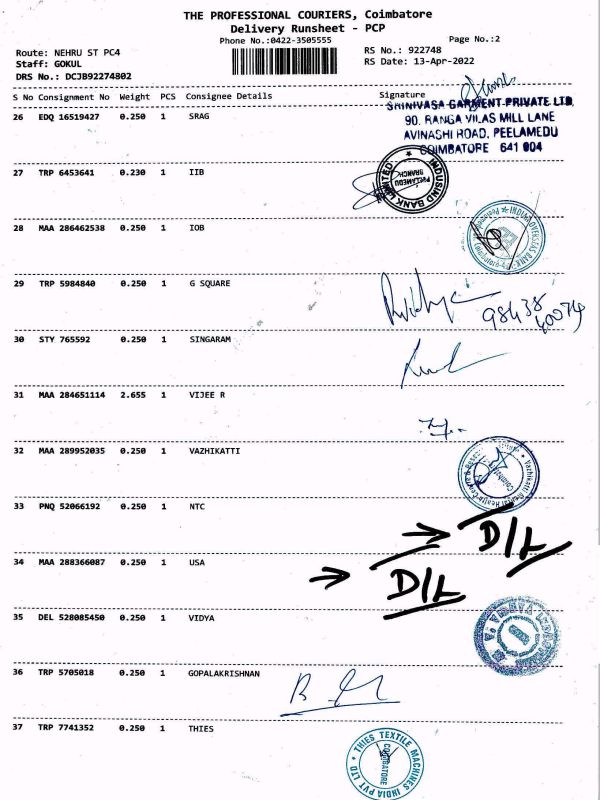 THE PROFESSIONAL COURIERS, Coimbatore
Delivery Runsheet - PCP
Phone No.:0422-3505555
Page No.:2
Route: NEHRU ST PC4
Staff: GOKUL
DRS No.: DCJB92274802
RS No.: 922748
RS Date: 13-Apr-2022
S No Consignment No Weight PCS Consignee Details Signature
26 EDQ 16519427 0.250 1 SRAG
SRINIVASA GARMENT PRIVATE LTD,
90, RANGA VILAS MILL LANE
AVINASHI ROAD, PEELAMEDU
COIMBATORE 641 004
27 TRP 6453641 0.230 1 IIB
INDUSIND BANK LIMITED
PEELAMEDU BRANCH
28 MAA 286462538 0.250 1 IOB
INDIAN OVERSEAS BANK
29 TRP 5984840 0.250 1 G SQUARE
98438
40074
30 STY 765592 0.250 1 SINGARAM
31 MAA 284651114 2.655 1 VIJEE R
32 MAA 289952035 0.250 1 VAZHIKATTI
33 PNQ 52066192 0.250 1 NTC
D/L
34 MAA 288366087 0.250 1 USA
D/L
35 DEL 528085450 0.250 1 VIDYA
36 TRP 5705018 0.250 1 GOPALAKRISHNAN
37 TRP 7741352 0.250 1 THIES
THIES TEXTILE MACHINES INDIA PVT LTD
COIMBATORE